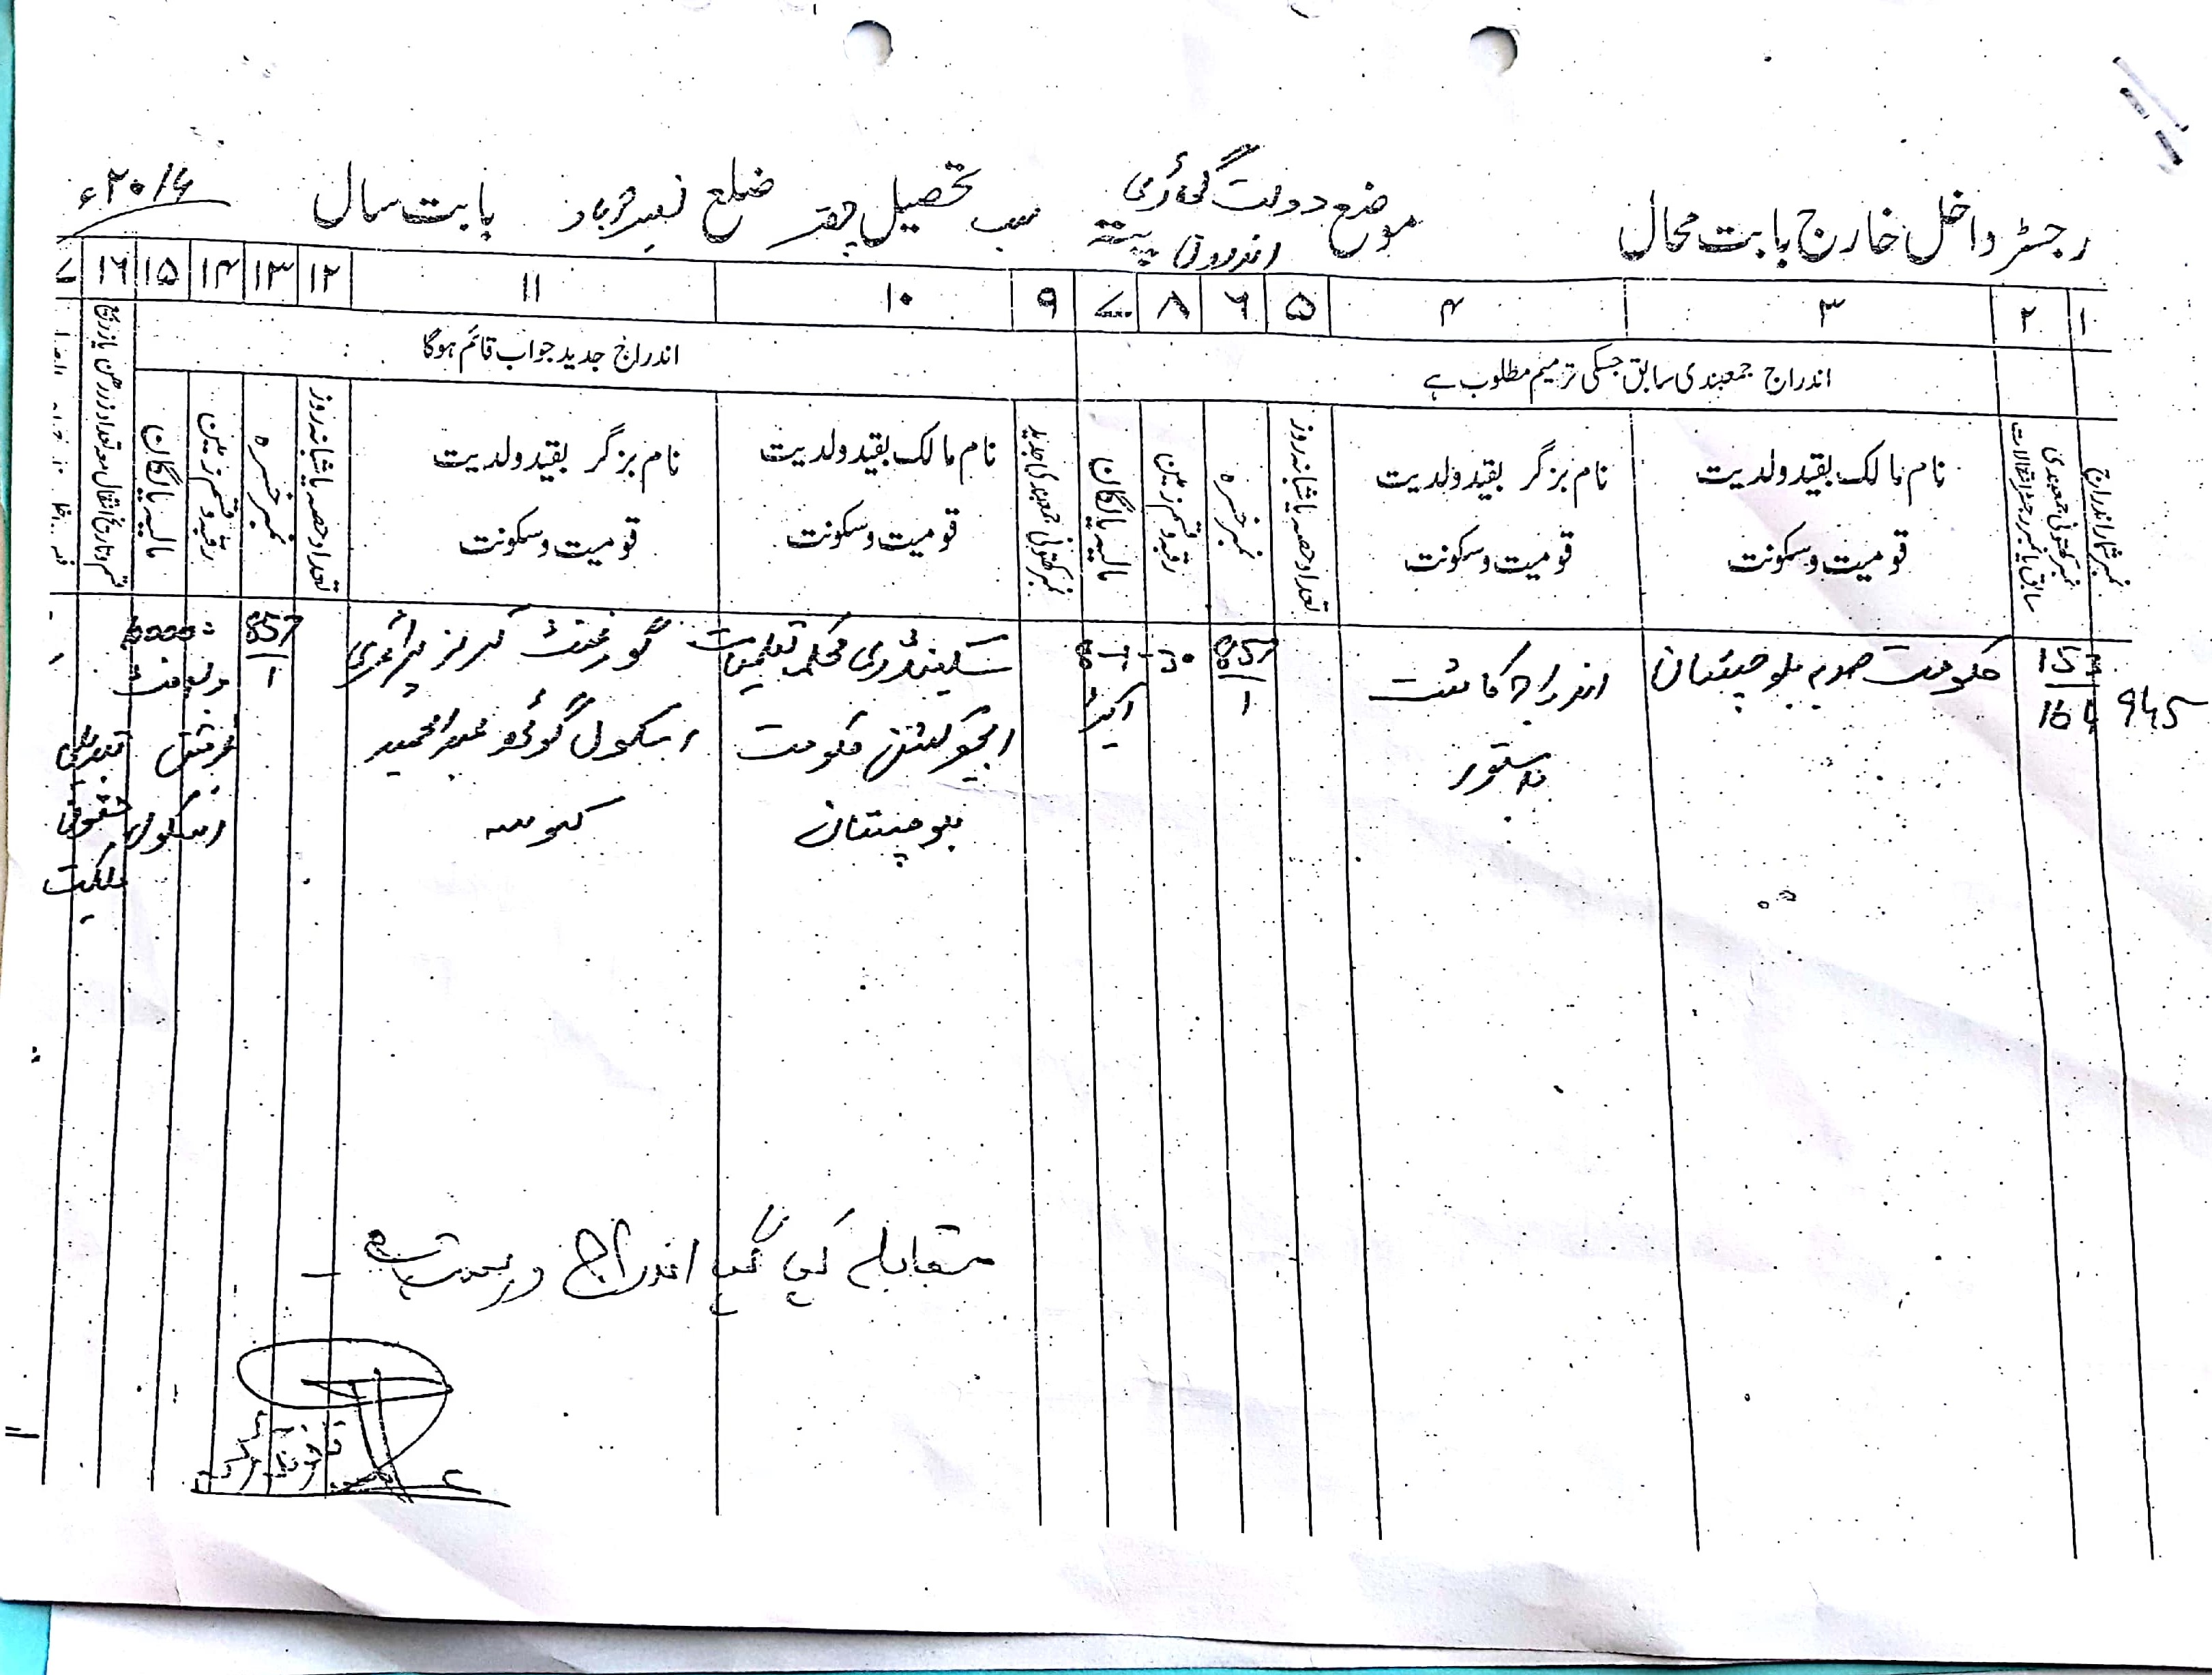 رجسٹر داخل خارج بابت محال موضع دولت گاڑی سب تحصیل چھتر ضلع نصیرآباد بابت سال ۲۰۱۶ء
اندرون پیٹہ
۱ ۲ ۳ ۴ ۵ ۶ ۸ ۷ ۹ ۱۰ ۱۱ ۱۲ ۱۳ ۱۴ ۱۵ ۱۶ ۷
اندراج جمعبندی سابق جسکی ترمیم مطلوب ہے
اندراج جدید جواب قائم ہوگا
نمبر شمار اندراج
نمبر کھتونی جمعبندی
سابق یا نمبر رجسٹر انتقالات
نام مالک بقید ولدیت
قومیت و سکونت
نام بزگر بقید ولدیت
قومیت و سکونت
تعداد حصہ یا شبانہ روز
نمبر خسرہ
رقبہ و قسم زمین
مالیہ یا لگان
نمبر کھتونی جمعبندی جدید
نام مالک بقید ولدیت
قومیت و سکونت
نام بزگر بقید ولدیت
قومیت و سکونت
تعداد حصہ یا شبانہ روز
نمبر خسرہ
رقبہ و قسم زمین
مالیہ یا لگان
قسم و تاریخ انتقال معہ تعداد زر رھن یا زر بیع
945
حکومت صوبہ بلوچستان
اندراج کاشت
بدستور
857/1
ایکڑ
سکینڈری محکمہ تعلیمات
ایجوکیشن حکومت
بلوچستان
گورنمنٹ گرلز پرائمری
اسکول گوٹھ عبدالحمید
کھوسہ
857/1
تبدیلی
اسکول
ملکیت
مقابلہ کی گئی اندراج درست ہے -